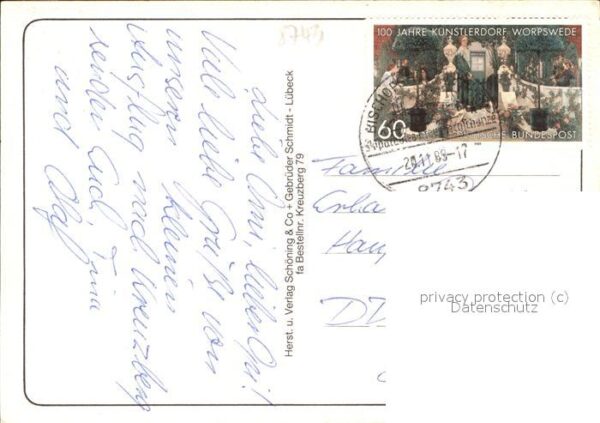 8743
100 JAHRE KÜNSTLERDORF WORPSWEDE
60
DEUTSCHE BUNDESPOST
BISCHOF
20.11.89-17
8743
Liebe Omi, lieber Opi!
Viele liebe Grüße vom
unserm kleinen
Ausflug nach Kreuzberg
senden Euch Tina
und Olaf
Herst. u. Verlag Schöning & Co + Gebrüder Schmidt - Lübeck
fa Bestellnr. Kreuzberg 79
Familie
privacy protection (c)
Datenschutz